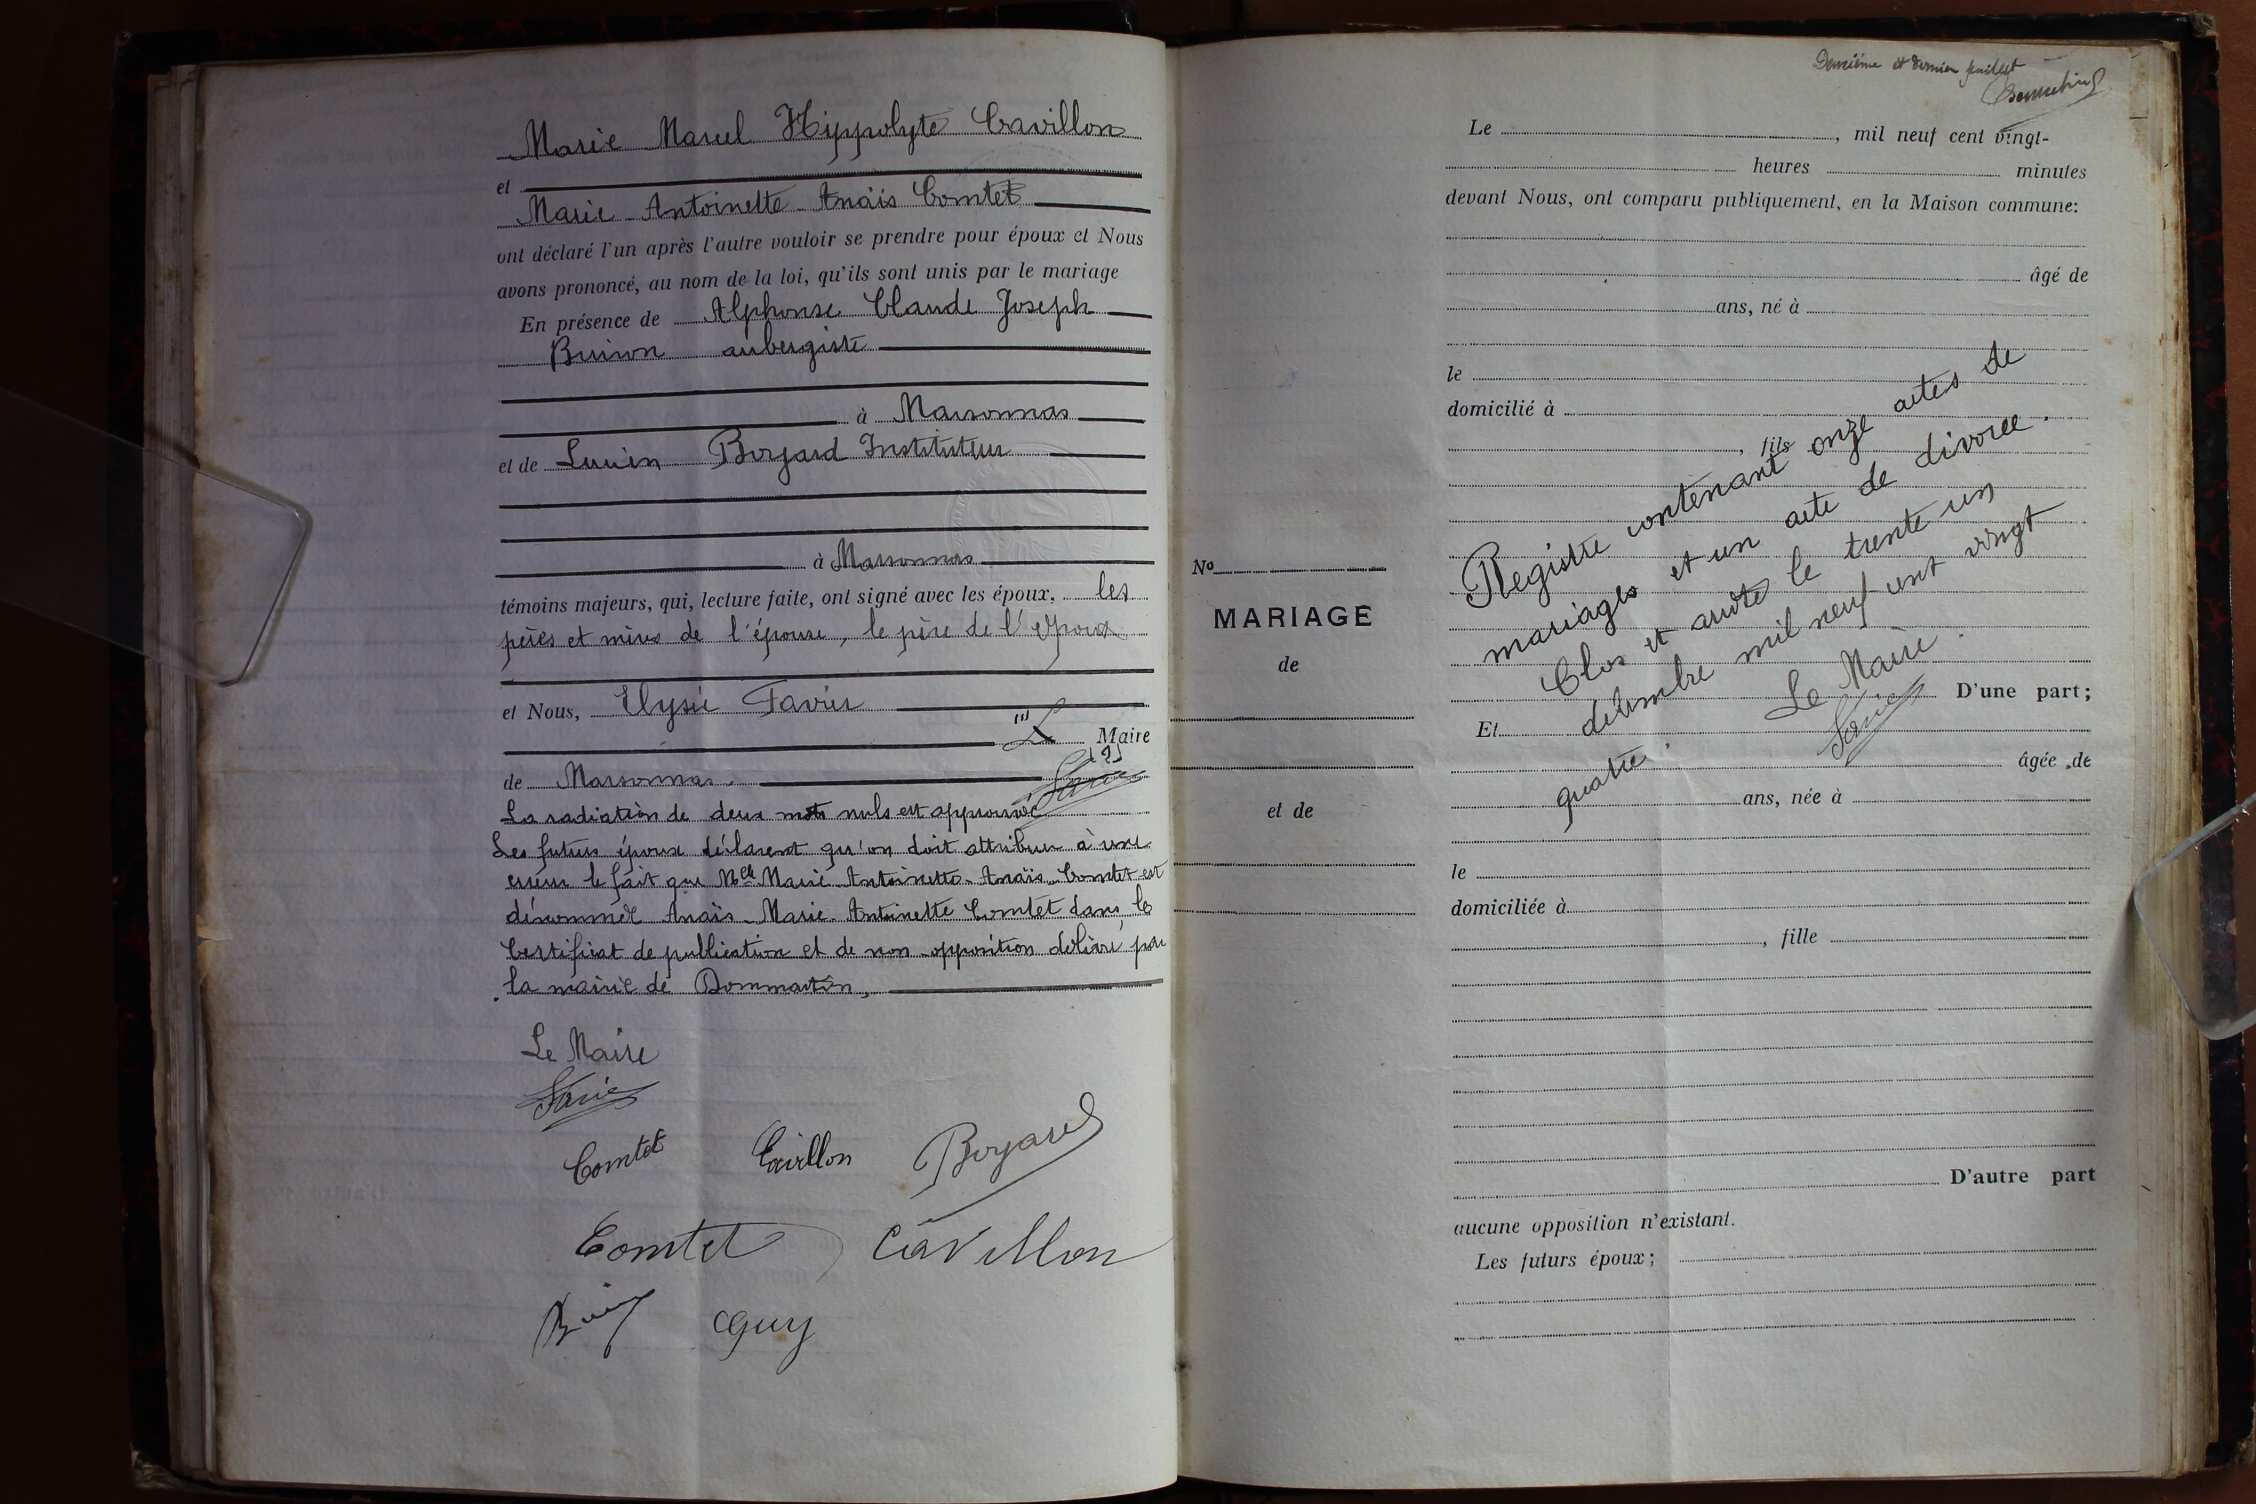 Marie Marcel Hippolyte Cavillon
et
Marie-Antoinette-Anaïs Comtet
ont déclaré l'un après l'autre vouloir se prendre pour époux et Nous
avons prononcé, au nom de la loi, qu'ils sont unis par le mariage
En présence de Alphonse Claude Joseph
Buiron aubergiste
à Marsonnas
et de Lucien Boyard Instituteur
à Marsonnas
témoins majeurs, qui, lecture faite, ont signé avec les époux, les
pères et mères de l'épouse, le père de l'époux
et Nous, Elysée Favier
Maire
de Marsonnas.
La radiation de deux mots nuls est approuvée
Les futurs époux déclarent qu'on doit attribuer à une
erreur le fait que Melle Marie-Antoinette-Anaïs Comtet est
dénommée Anaïs-Marie-Antoinette Comtet dans le
Certificat de publication et de non-opposition délivré par
la mairie de Dommartin,
Le Maire
Favier
Comtet Cavillon Boyard
Comtet Cavillon
Guy
N°
MARIAGE
de
et de
Deuxième et dernier feuillet
Le , mil neuf cent vingt-
heures minutes
devant Nous, ont comparu publiquement, en la Maison commune:
âgé de
ans, né à
le
domicilié à
, fils
Registre contenant onze actes de
mariages et un acte de divorce.
Clos et arrêté le trente un
décembre mil neuf cent vingt
quatre.
Le Maire.
Favier
D'une part;
Et
âgée de
ans, née à
le
domiciliée à
, fille
D'autre part
aucune opposition n'existant.
Les futurs époux;